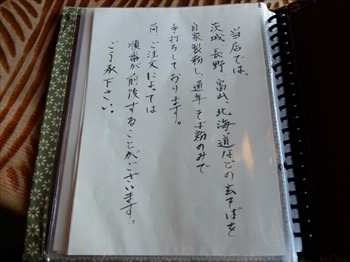 当店では、
茨城、長野、富山、北海道などの玄そばを
自家製粉し、通年そば粉のみで
手打ちしております。
尚、ご注文によっては
順番が前後することがございます。
ご了承下さい。